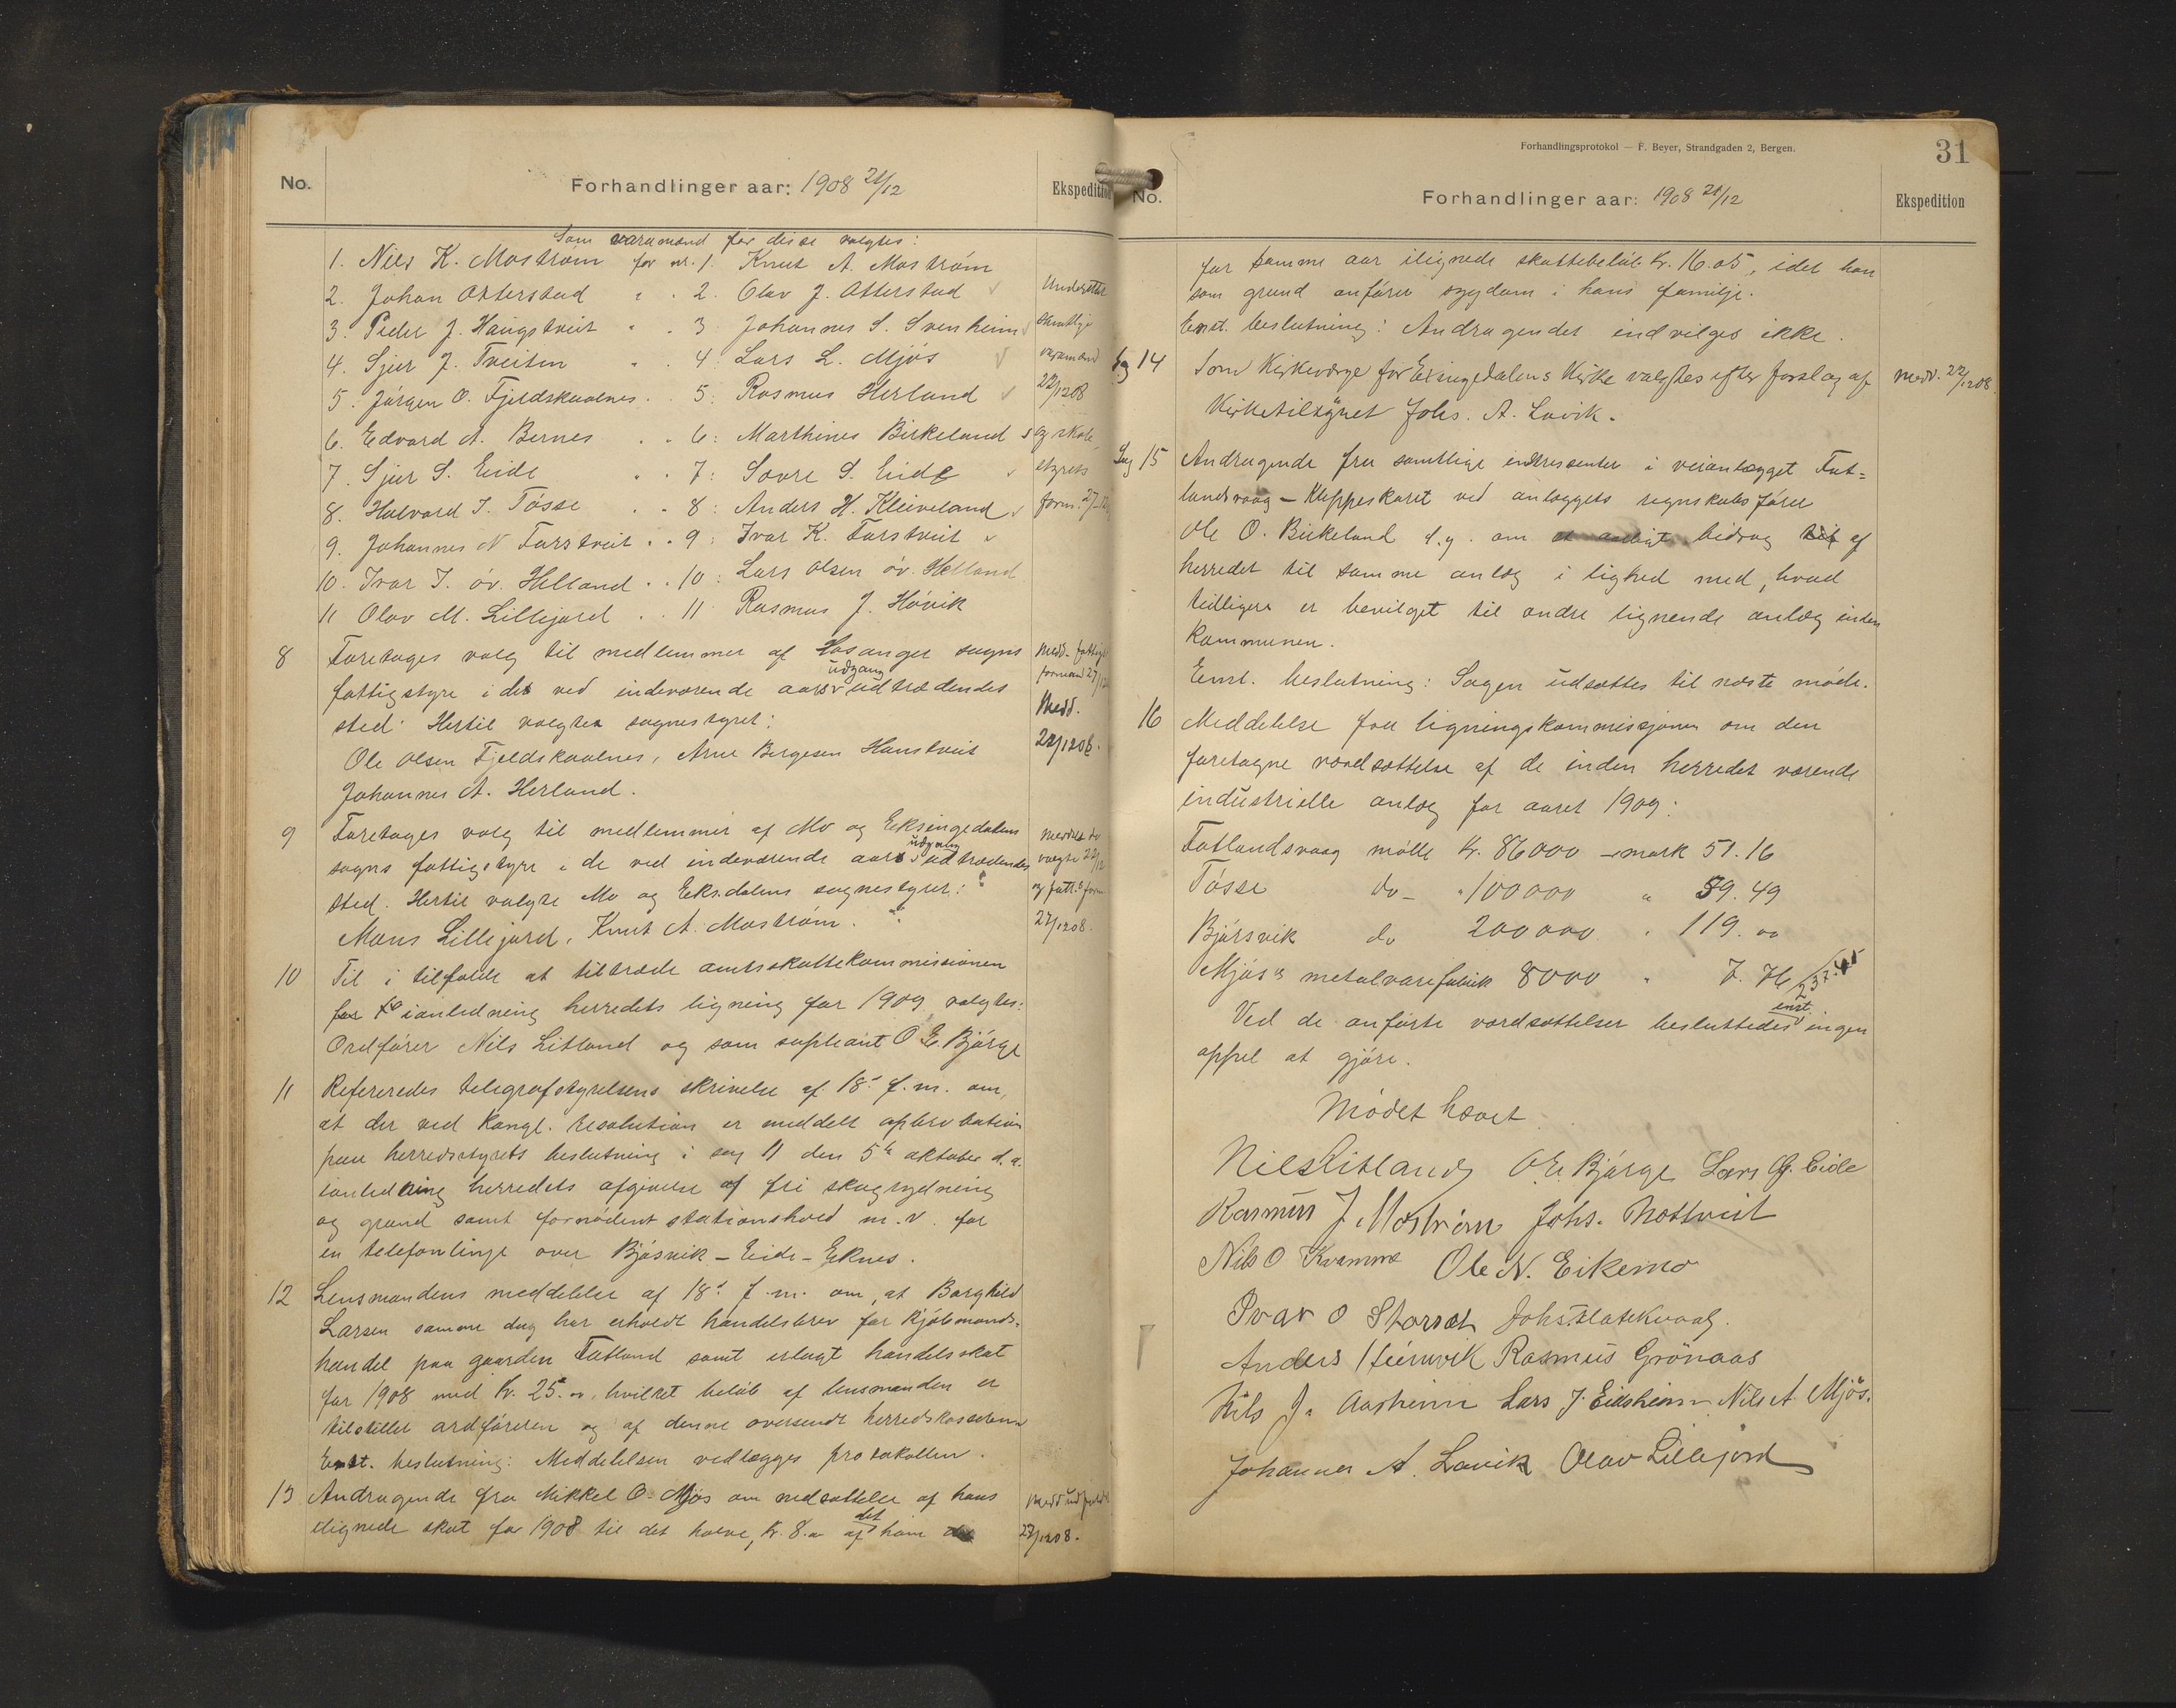 No.
Forhandlinger aar: 1908 21/12
Ekspedition
Som varamænd for disse valgtes:
1. Nils K. Mostrøm for nr. 1. Knut A. Mostrøm
2. Johan Otterstad " . 2. Olav J. Otterstad
3. Peder J. Haugstveit " . 3: Johannes S. Svenheim
4. Sjur J. Tveiten . 4: Lars L. Mjøs
5. Jørgen O. Fjeldskaalnes . 5: Rasmus Herland
6. Edvard A. Bernes . . 6: Marthines Birkeland
7. Sjur S. Eide . . 7: Sovre S. Eide
8. Halvard I. Tøsse . . 8: Anders H. Kleiveland
9. Johannes N Farstveit . . 9: Ivar K. Farstveit
10. Ivar I. øv. Helland . . 10: Lars Olsen øv. Helland
11 Olav M. Lillejord . . 11 Rasmus J. Høvik
Underettet
samtlige
varamænd
22/1208
og skole
styrets
form. 27-12
8 Foretages valg til medlemmer af Hosanger sogns
fattigstyre i de ved indeværende aars udgang udtrædendes
sted. Hertil valgtes sognestyret:
Ole Olsen Fjeldskaalnes, Arne Bergesen Hanstveit
Johannes A. Herland.
Medd. fattig
formand 27/12
Medd.
22/1208.
9 Foretages valg til medlemmer af Mo og Eksingedalens
sogns fattigstyre i de ved indeværende aars udgang udtrædendes
sted. Hertil valgte Mo og Eksdalens sognestyret:
Mons Lillejord, Knut A. Mostrøm.
meddelt de
valgte 22/12
og fatt. s form
27/1208.
10 Til i tilfælde at tiltræde amtsskattekommissionen
for ianledning herredets ligning for 1909 valgtes:
Ordfører Nils Litland og som supleant O E. Bjørge
11 Refereredes telegrafstyrelsens skrivelse af 18. f.m. om,
at der ved kongl. resolution er meddelt approbation
paa herredsstyrets beslutning i sag 11 den 5te oktober d.a.
ianledning herredets afgivelse af fri skogrydning
og grund samt fornødent stationshold m.v. for
en telefonlinje over Bjøsvik - Eide - Eknes.
12 Lensmandens meddelelse af 18. f.m. om, at Borghild
Larsen samme dag har erholdt handelsbrev for kjøbmands-
handel paa gaarden Fatland samt erlagt handelsskat
for 1908 med Kr. 25.oo, hvilket beløb af lensmanden er
tilstillet ordføreren og af denne oversendt herredskassereren
Enst. beslutning: Meddelelsen vedlægges protokollen.
13 Andragende fra Mikkel O. Mjøs om nedsættelse af hans
ilignede skat for 1908 til det halve, Kr. 8.oo af det ham
27/1208.
Forhandlingsprotokol — F. Beyer, Strandgaden 2, Bergen.
31
No.
Forhandlinger aar: 1908 21/12
Ekspedition
for samme aar ilignede skattebeløb Kr. 16.05, idet han
som grund anfører sygdom i hans familje.
Enst. beslutning: Andragendet indvilges ikke.
Sag 14 Som Kirkeværge for Exingedalens Kirke valgtes efter forslag af
Kirketilsynet Johs. A. Lavik.
Medd. 22/1208.
Sag 15 Andragende fra samtlige intressenter i veianlægget Fat=
landsvaag - Kleppeskaret ved anlæggets regnskabsfører
Ole O. Birkeland d.y. om bidrag af
herredet til samme anlæg i lighed med, hvad
tidligere er bevilget til andre lignende anlæg inden
kommunen.
Enst. beslutning: Sagen udsættes til næste møde.
16 Meddelelse fra ligningskommissionen om den
foretagne værdsættelse af de inden herredet værende
industrielle anlæg for aaret 1909:
Fatlandsvaag mølle Kr. 86000 - mark 51.16
Tøsse do - " 100000 " 59.49
Bjørsvik do 200000 " 119.oo
Mjøs's metalvarefabrik 8000 " 7.76 237.41
Ved de anførte værdsættelser besluttedes enst. ingen
appel at gjøre.
Mødet hævet
Nils Litland O. E. Bjørge Lars G. Eide
Rasmus J. Mostrøm Johs. Mostveit
Nils O Kvamme Ole N. Eikemo
Ivar O Storset Johs. Flatekvaal.
Anders Heimvik Rasmus Grønaas
Nils J. Aasheim Lars J. Eidsheim Nils A. Mjøs.
Johannes A. Lavik Olav Lillejord